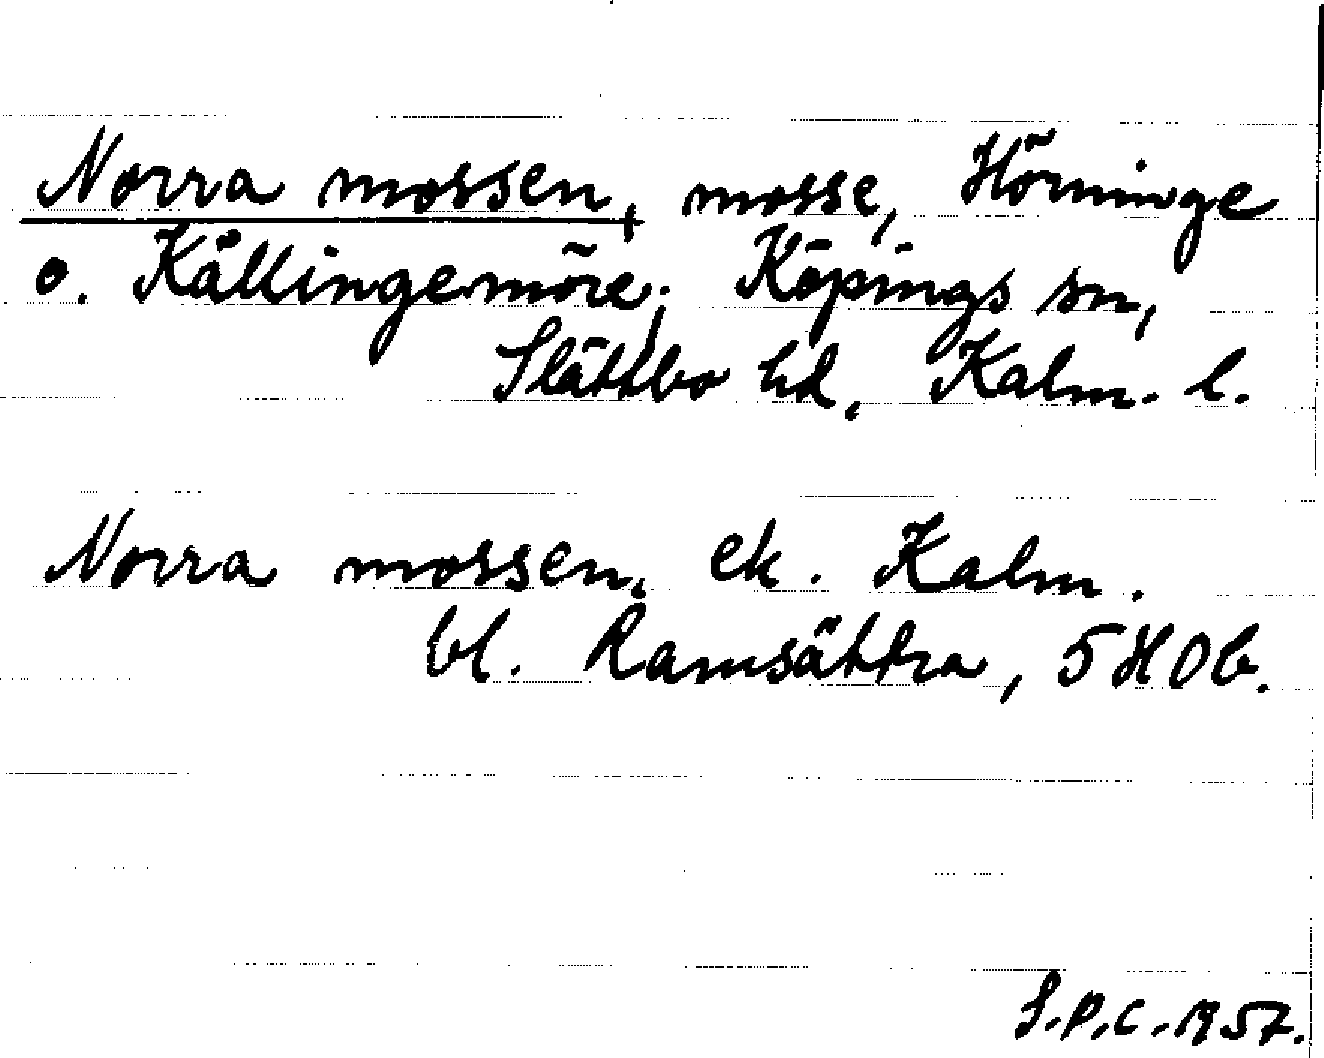 Norra mossen, mosse, Hörninge
o. Kållingemöre, Köpings sn,
Slättbo hd, Kalm. l.
Norra mossen, ek. Kalm.
bl. Ramsättra, 5H0b.
S.P.C. 1957.